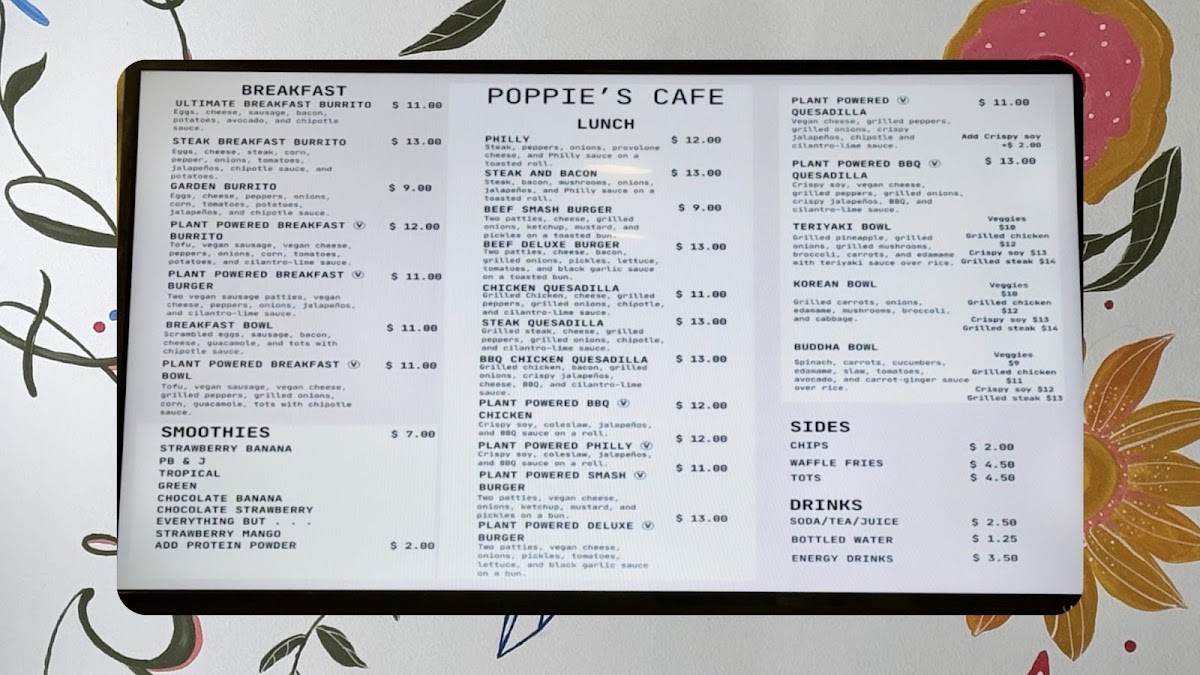 BREAKFAST
ULTIMATE BREAKFAST BURRITO $ 11.00
Eggs, cheese, sausage, bacon,
potatoes, avocado, and chipotle
sauce.
STEAK BREAKFAST BURRITO $ 13.00
Eggs, cheese, steak, corn,
pepper, onions, tomatoes,
jalapeños, chipotle sauce, and
potatoes.
GARDEN BURRITO $ 9.00
Eggs, cheese, peppers, onions,
corn, tomatoes, potatoes,
jalapeños, and chipotle sauce.
PLANT POWERED BREAKFAST Ⓥ $ 12.00
BURRITO
Tofu, vegan sausage, vegan cheese,
peppers, onions, corn, tomatoes,
potatoes, and cilantro-lime sauce.
PLANT POWERED BREAKFAST Ⓥ $ 11.00
BURGER
Two vegan sausage patties, vegan
cheese, peppers, onions, jalapeños,
and cilantro-lime sauce.
BREAKFAST BOWL $ 11.00
Scrambled eggs, sausage, bacon,
cheese, guacamole, and tots with
chipotle sauce.
PLANT POWERED BREAKFAST Ⓥ $ 11.00
BOWL
Tofu, vegan sausage, vegan cheese,
grilled peppers, grilled onions,
corn, guacamole, tots with chipotle
sauce.
SMOOTHIES $ 7.00
STRAWBERRY BANANA
PB & J
TROPICAL
GREEN
CHOCOLATE BANANA
CHOCOLATE STRAWBERRY
EVERYTHING BUT . . .
STRAWBERRY MANGO
ADD PROTEIN POWDER $ 2.00
POPPIE'S CAFE
LUNCH
PHILLY $ 12.00
Steak, peppers, onions, provolone
cheese, and Philly sauce on a
toasted roll.
STEAK AND BACON $ 13.00
Steak, bacon, mushrooms, onions,
jalapeños, and Philly sauce on a
toasted roll.
BEEF SMASH BURGER $ 9.00
Two patties, cheese, grilled
onions, ketchup, mustard, and
pickles on a toasted bun.
BEEF DELUXE BURGER $ 13.00
Two patties, cheese, bacon,
grilled onions, pickles, lettuce,
tomatoes, and black garlic sauce
on a toasted bun.
CHICKEN QUESADILLA $ 11.00
Grilled Chicken, cheese, grilled
peppers, grilled onions, chipotle,
and cilantro-lime sauce.
STEAK QUESADILLA $ 13.00
Grilled steak, cheese, grilled
peppers, grilled onions, chipotle,
and cilantro-lime sauce.
BBQ CHICKEN QUESADILLA $ 13.00
Grilled chicken, bacon, grilled
onions, crispy jalapeños,
cheese, BBQ, and cilantro-lime
sauce.
PLANT POWERED BBQ Ⓥ $ 12.00
CHICKEN
Crispy soy, coleslaw, jalapeños,
and BBQ sauce on a roll.
PLANT POWERED PHILLY Ⓥ $ 12.00
Crispy soy, coleslaw, jalapeños,
and BBQ sauce on a roll.
PLANT POWERED SMASH Ⓥ $ 11.00
BURGER
Two patties, vegan cheese,
onions, ketchup, mustard, and
pickles on a bun.
PLANT POWERED DELUXE Ⓥ $ 13.00
BURGER
Two patties, vegan cheese,
onions, pickles, tomatoes,
lettuce, and black garlic sauce
on a bun.
PLANT POWERED Ⓥ $ 11.00
QUESADILLA
Vegan cheese, grilled peppers,
grilled onions, crispy
jalapeños, chipotle and
cilantro-lime sauce.
Add Crispy soy
+$ 2.00
PLANT POWERED BBQ Ⓥ $ 13.00
QUESADILLA
Crispy soy, vegan cheese,
grilled peppers, grilled onions,
crispy jalapeños, BBQ, and
cilantro-lime sauce.
TERIYAKI BOWL
Grilled pineapple, grilled
onions, grilled mushrooms,
broccoli, carrots, and edamame
with teriyaki sauce over rice.
Veggies
$10
Grilled chicken
$12
Crispy soy $13
Grilled steak $14
KOREAN BOWL
Grilled carrots, onions,
edamame, mushrooms, broccoli,
and cabbage.
Veggies
$10
Grilled chicken
$12
Crispy soy $13
Grilled steak $14
BUDDHA BOWL
Spinach, carrots, cucumbers,
edamame, slaw, tomatoes,
avocado, and carrot-ginger sauce
over rice.
Veggies
$9
Grilled chicken
$11
Crispy soy $12
Grilled steak $13
SIDES
CHIPS $ 2.00
WAFFLE FRIES $ 4.50
TOTS $ 4.50
DRINKS
SODA/TEA/JUICE $ 2.50
BOTTLED WATER $ 1.25
ENERGY DRINKS $ 3.50